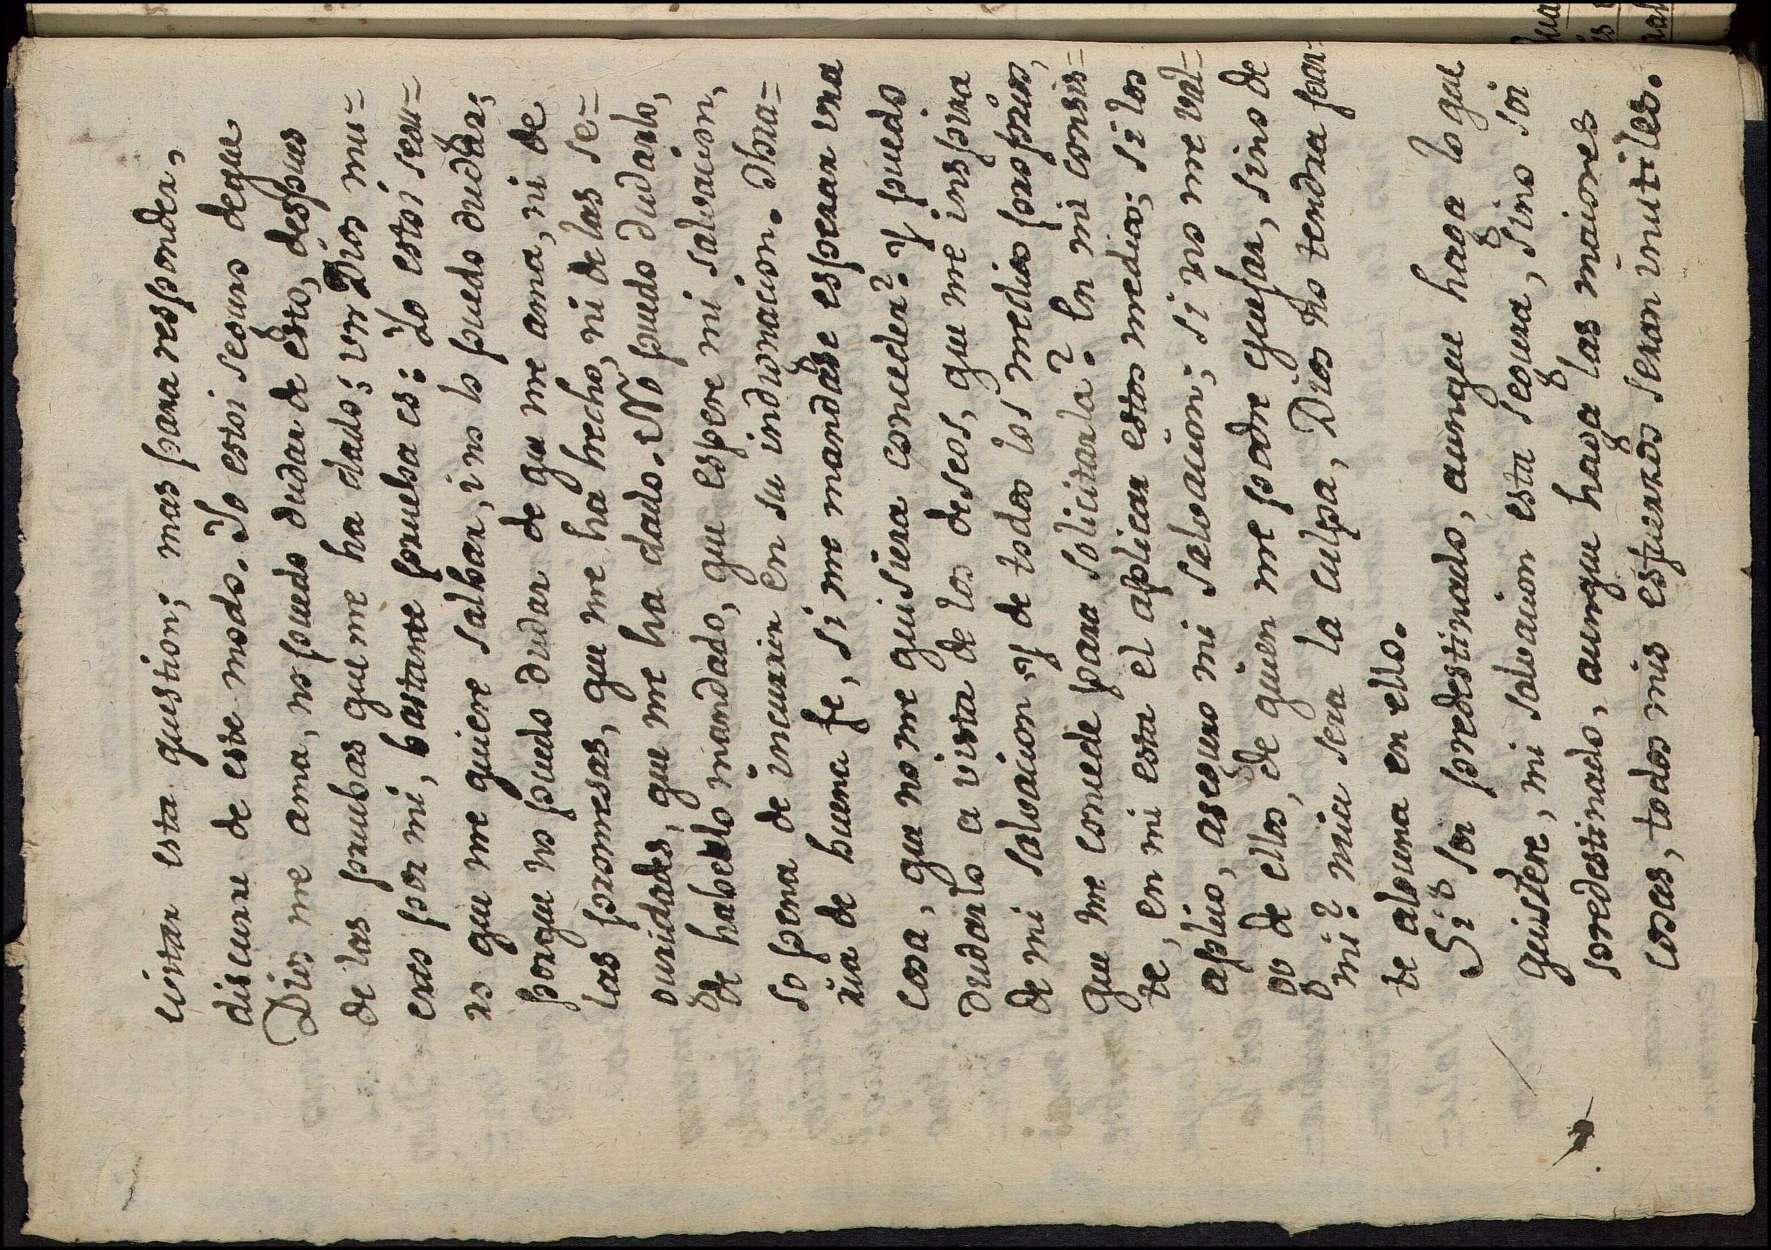 citar esta question; mas para responder,
discurre de este modo. Yo estoi seguro deque
Dios me ama, no puedo dudar de esto, despues
de las pruebas que me ha dado; un Dios mu=
erto por mi, bastante prueba es: Yo estoi segu=
ro que me quiere salbar, i no lo puedo dudar;
porque no puedo dudar de que me ama, ni de
las promesas, que me ha hecho, ni de las se=
guridades, que me ha dado. No puedo dudarlo,
de haberlo mandado, que espere mi salvacion,
so pena de incurrir en su indignacion. Obra=
ria de buena fe, si me mandase esperar una
cosa, que no me quisiera conceder? Y puedo
dudarlo a vista de los deseos, que me inspira
de mi salvacion, y de todos los medios propios,
que me concede para solicitarla? En mi consis=
te, en mi esta el aplicar estos medios; si los
aplico, aseguro mi salvacion; si no me val=
go de ellos, de quien me podre quejar, sino de
mi? mia sera la culpa, Dios no tendra par=
te alguna en ello.
Si soi predestinado, aunque haga lo que
quisiere, mi salvacion esta segura, sino soi
predestinado, aunque haga las maiores
cosas, todos mis esfuerzos seran inutiles.